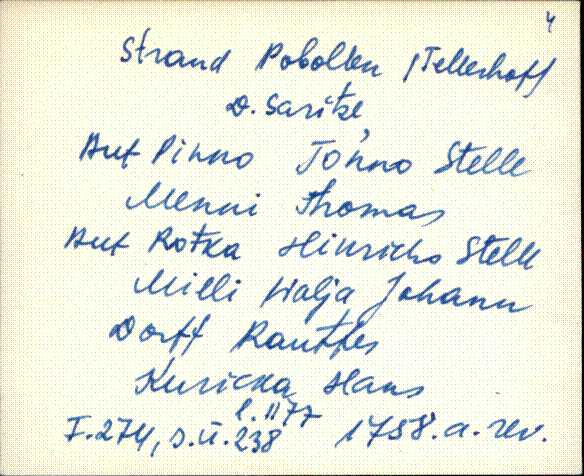 4
Strand Pobollen /Tellerhoff
D. Saritze,
Auf Pinno Tönno Stelle
Menni Thomas
Auf Rotka Hinrichs Stelle
Milli Walja Johann
Dorff Rauttfes
Kuricka Hans
l. 1177
F. 274, s. ü. 238 1758. a. rev.